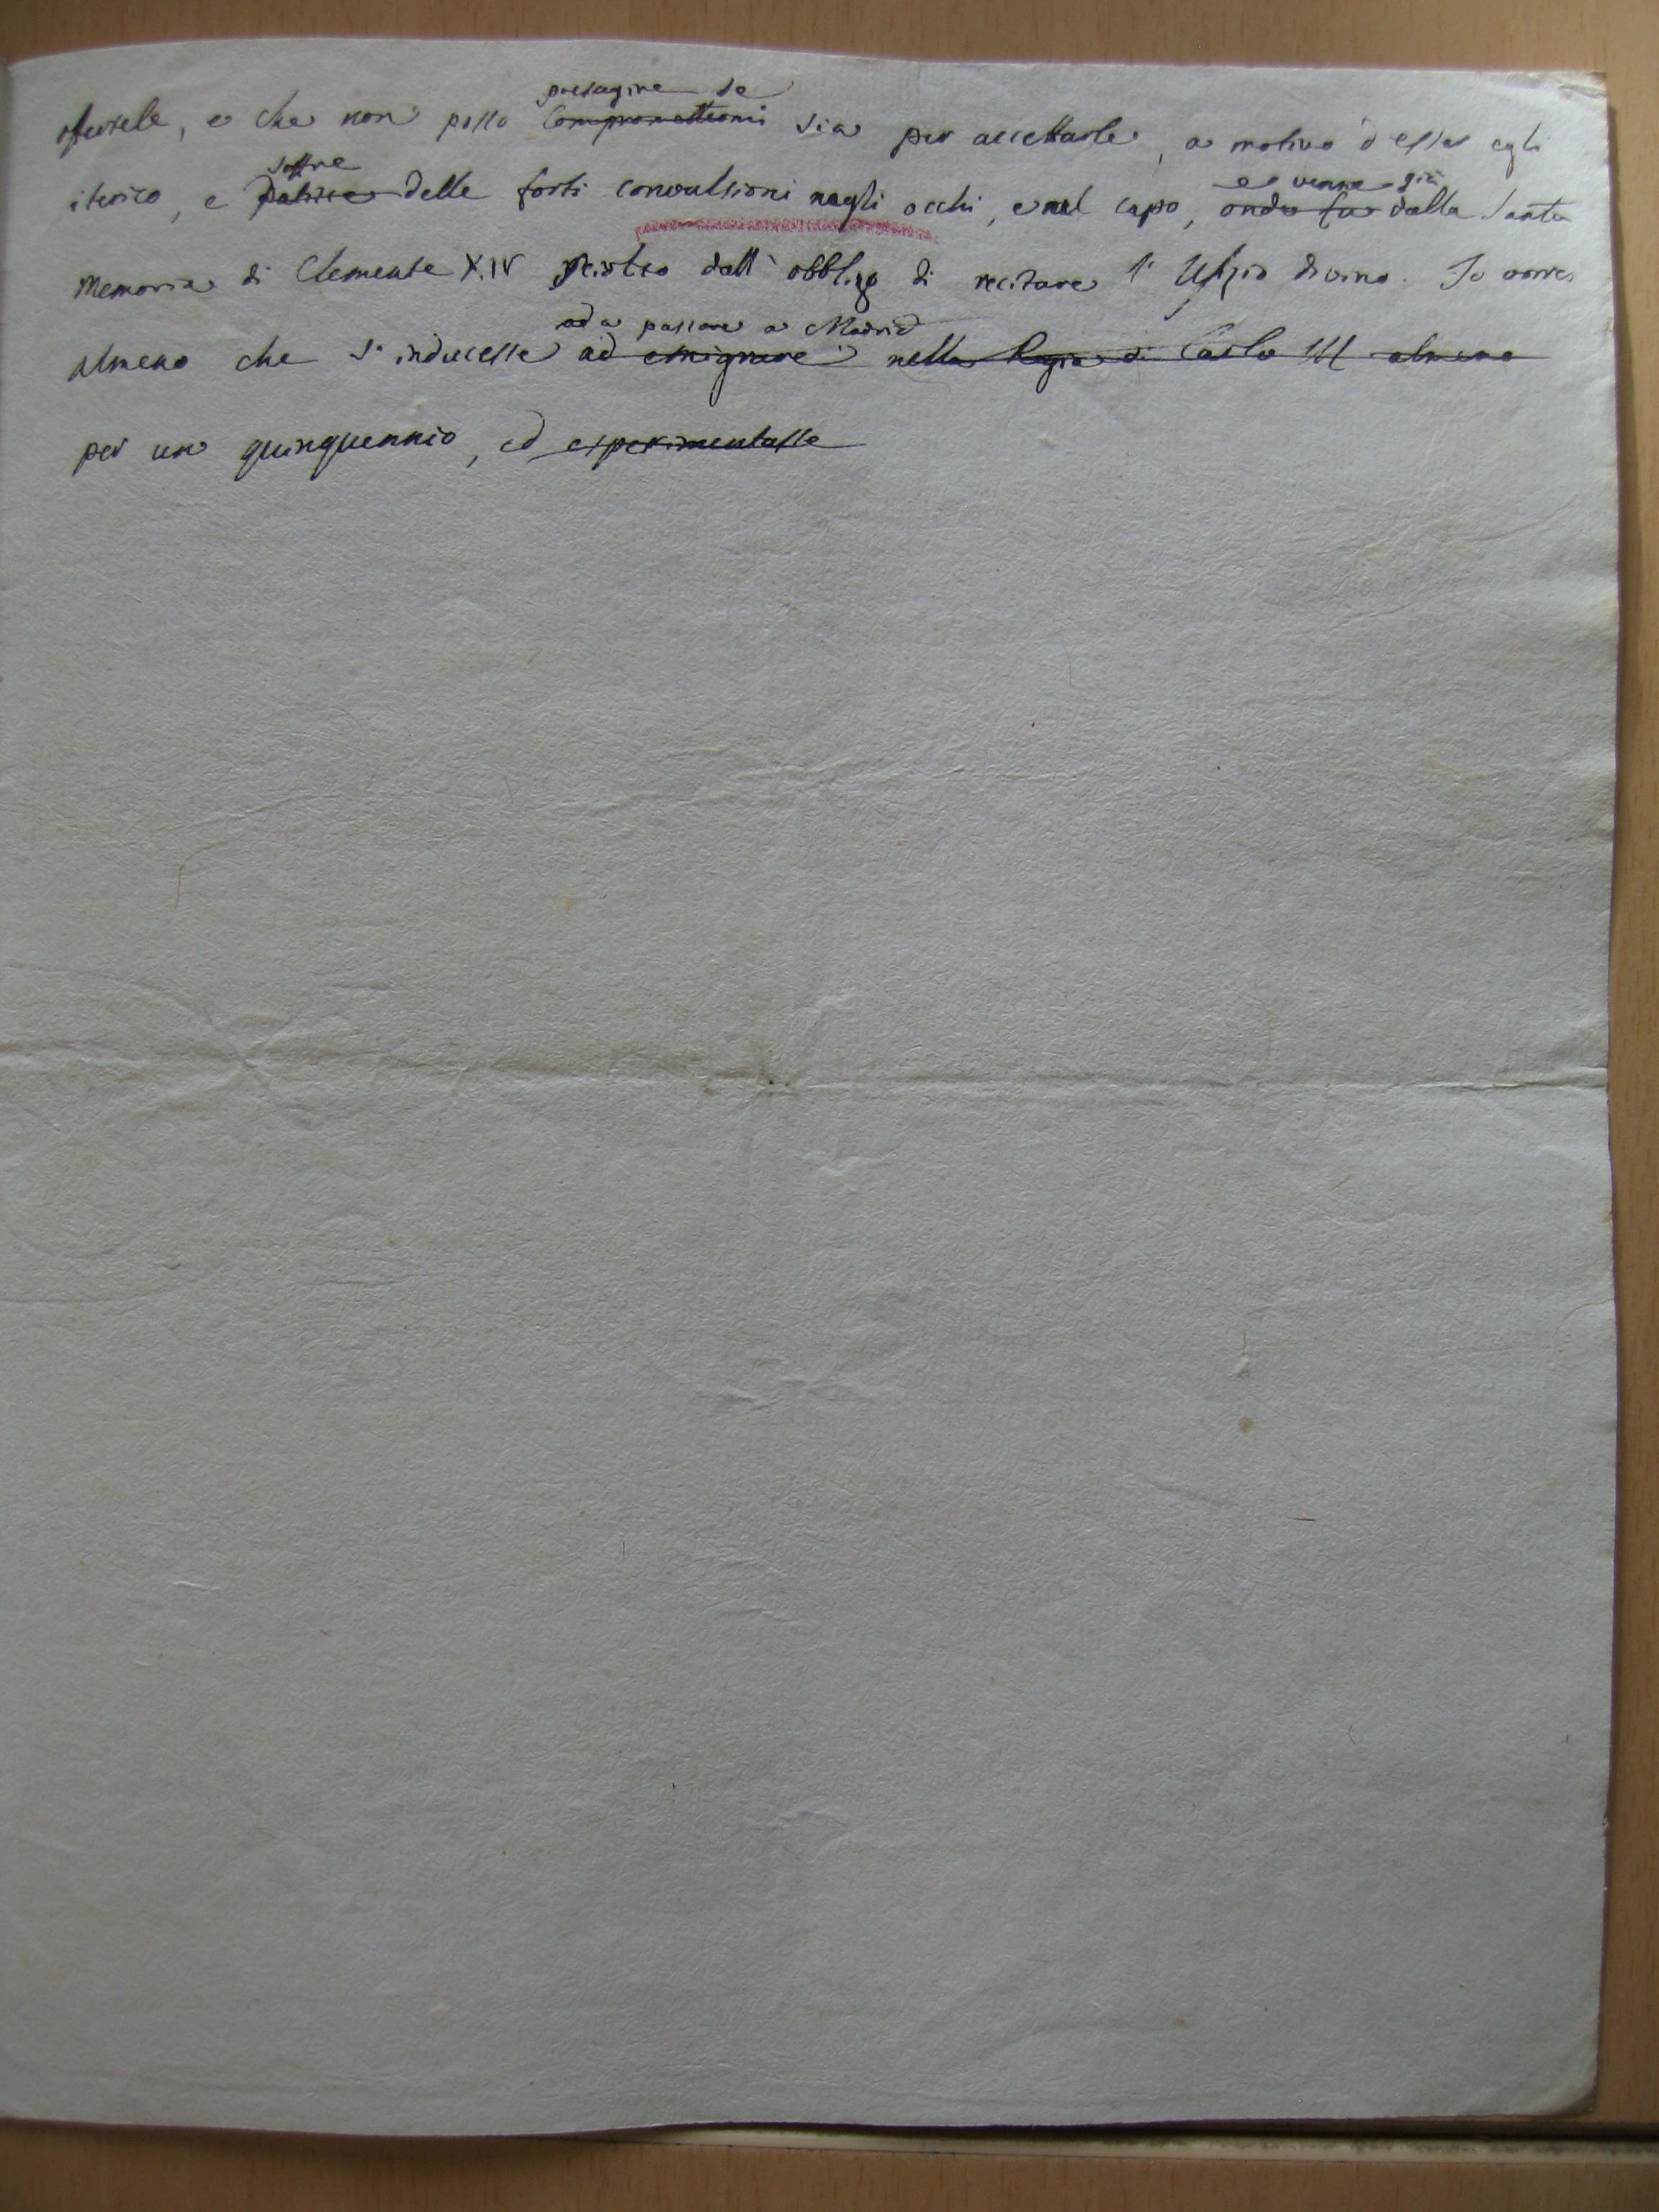 presagire se
offerirle, e che non posso compromettermi sia per accettarle, a motivo d'esser egli
soffre
e venne già
iterico, e patisce delle forti convulsioni negli occhi, e nel capo, onde fu dalla Santa
Memoria di Clemente XIV sciolto dall'obbligo di recitare l'Ufizio divino. Io vorrei
ad a passare a Madrid
almeno che s'inducesse ad emigrare nella Regia di Carlo III almeno
per un quinquennio, ed esperimentasse